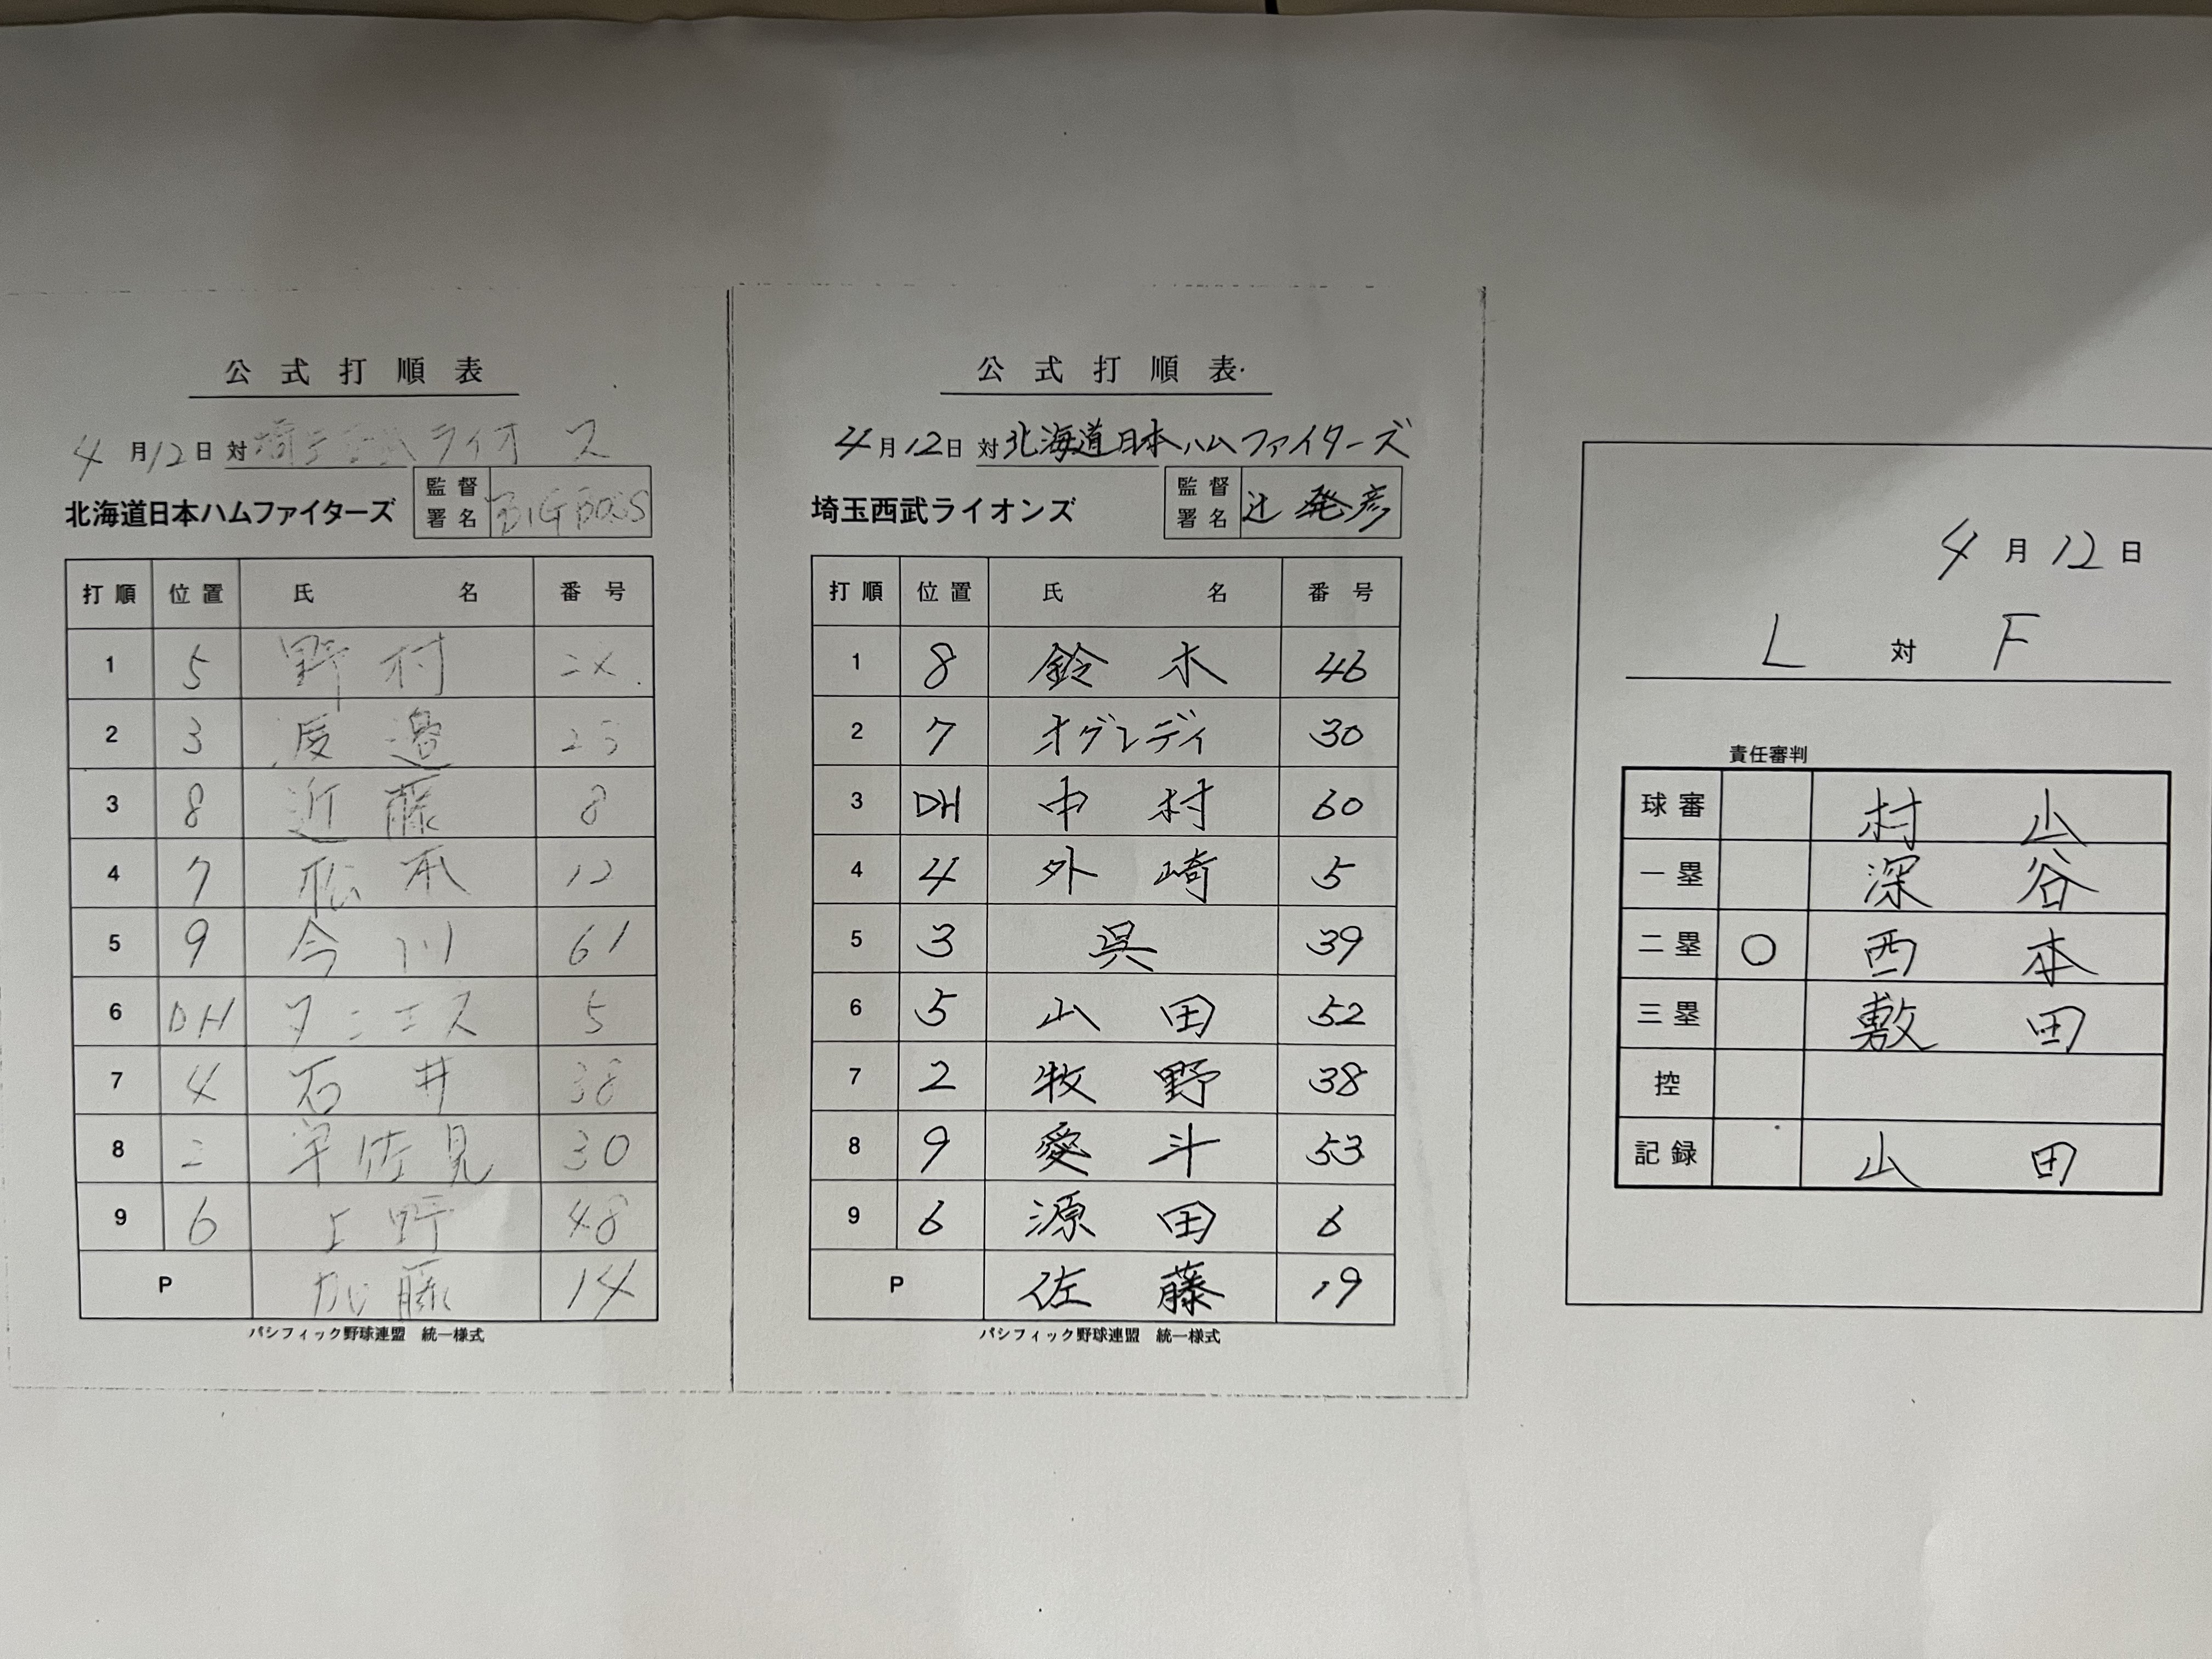 公式打順表
4月12日 対 埼玉西武ライオンズ
北海道日本ハムファイターズ 監督署名 BIGBOSS
打順 位置 氏名 番号
1 5 野村
2 3 渡邉
3 8 近藤 8
4 7 松本 12
5 9 今川 61
6 DH ヌニエス 5
7 4 石井 38
8 2 宇佐見 30
9 6 上野 48
P 加藤 14
パシフィック野球連盟 統一様式
公式打順表
4月12日 対 北海道日本ハムファイターズ
埼玉西武ライオンズ 監督署名 辻発彦
打順 位置 氏名 番号
1 8 鈴木 46
2 7 オグレディ 30
3 DH 中村 60
4 4 外崎 5
5 3 呉 39
6 5 山田 52
7 2 牧野 38
8 9 愛斗 53
9 6 源田 6
P 佐藤 19
パシフィック野球連盟 統一様式
4月12日
L 対 F
責任審判
球審 村山
一塁 深谷
二塁 ○ 西本
三塁 敷田
控
記録 山田